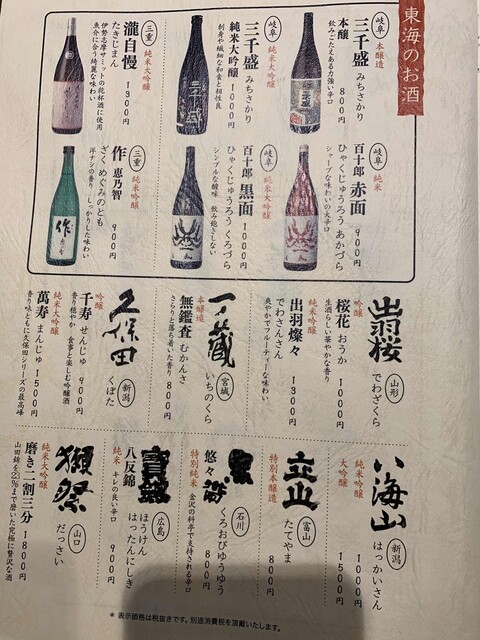 東海のお酒
岐阜 本醸造
三千盛 みちさかり
本醸 800円
飲みごたえある力強い辛口
岐阜 純米大吟醸
三千盛 みちさかり
純米大吟醸 1000円
刺身や繊細な和食と相性良
三重 純米大吟醸
瀧自慢
たきじまん 1300円
伊勢志摩サミットの乾杯酒に使用
魚介に合う綺麗な味わい
岐阜 純米
百十郎 赤面
ひゃくじゅうろう あかづら
900円
シャープな味わいの大辛口
岐阜 純米吟醸
百十郎 黒面
ひゃくじゅうろう くろづら
1000円
シンプルな酸味 飲み飽きしない
三重 純米吟醸
作 恵乃智
ざく めぐみのとも
900円
洋ナシの香り しっかりした味わい
出羽桜 でわざくら 山形
吟醸
桜花 おうか 1000円
生酒らしい華やかな香り
純米吟醸
出羽燦々
でわさんさん 1300円
爽やかでフルーティーな味わい
一ノ蔵 いちのくら 宮城
本醸造
無鑑査 むかんさ 800円
さらりと落ち着いた香り
久保田 くぼた 新潟
吟醸
千寿 せんじゅ 900円
香り穏やか 食事と楽しむ吟醸酒
純米大吟醸
萬寿 まんじゅ 1500円
香り味ともに久保田シリーズの最高峰
八海山 はっかいさん 新潟
純米吟醸 1000円
大吟醸 1500円
立山 たてやま 富山
特別本醸造 800円
黒帯 くろおびゆうゆう 石川
悠々 800円
特別純米 金沢の料亭で支持される辛口
寳剣 ほうけん 広島
八反錦 はったんにしき
900円
純米 キレの良い辛口
獺祭 だっさい 山口
純米大吟醸
磨き二割三分 1800円
山田錦を23%まで磨いた究極に贅沢な酒
＊表示価格は税抜きです。別途消費税を頂戴いたします。